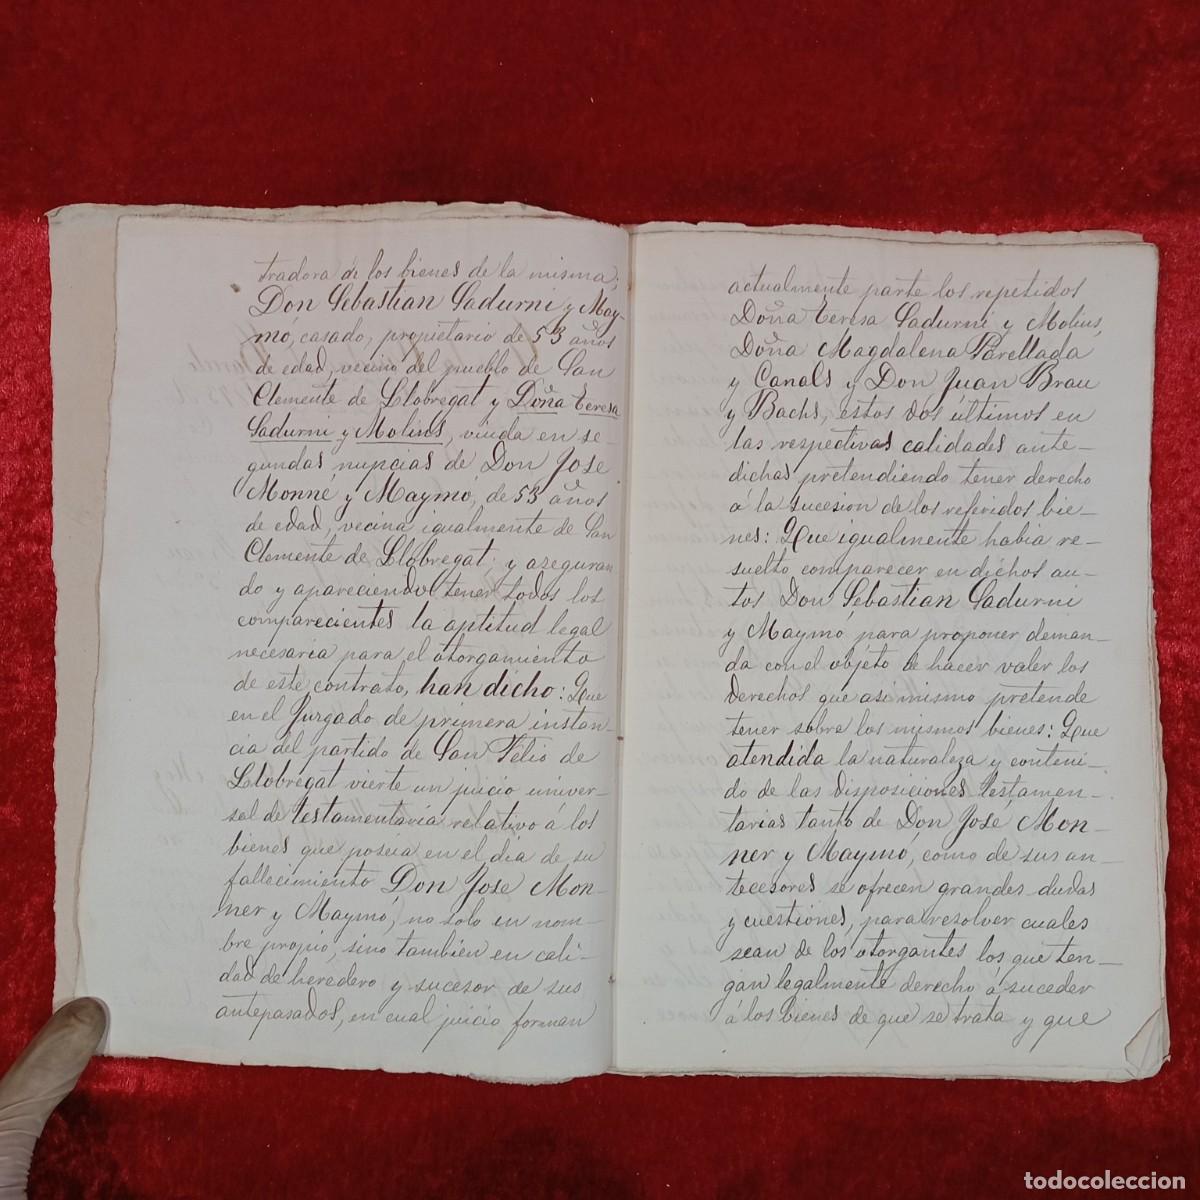 tradora de los bienes de la misma;
Don Sebastian Sadurni y May-
mó, casado, propietario de 53 años
de edad, vecino del pueblo de San
Clemente de Llobregat y Doña Teresa
Sadurni y Molins, viuda en se-
gundas nupcias de Don José
Monné y Maymó, de 53 años
de edad, vecina igualmente de San
Clemente de Llobregat; y aseguran
do y apareciendo tener todos los
comparecientes la aptitud legal
necesaria para el otorgamiento
de este contrato, han dicho: Que
en el Juzgado de primera instan-
cia del partido de San Felio de
Llobregat vierte un juicio univer-
sal de testamentaria relativo á los
bienes que poseia en el dia de su
fallecimiento Don José Mon-
ner y Maymó, no solo en nom-
bre propio, sino tambien en cali-
dad de heredero y sucesor de sus
antepasados, en cual juicio forman
actualmente parte los repetidos
Doña Teresa Sadurni y Molins,
Doña Magdalena Parellada
y Canals y Don Juan Brau
y Bachs, estos dos últimos en
las respectivas calidades ante-
dichas pretendiendo tener derecho
á la sucesion de los referidos bie-
nes: Que igualmente habia re-
suelto comparecer en dichos au-
tos Don Sebastian Sadurni
y Maymó para proponer deman-
da con el objeto de hacer valer los
derechos que asi mismo pretende
tener sobre los mismos bienes: Que
atendida la naturaleza y conteni-
do de las disposiciones testamen-
tarias tanto de Don José Mon-
ner y Maymó, como de sus an-
tecesores se ofrecen grandes dudas
y cuestiones, para resolver cuales
sean de los otorgantes los que ten-
gan legalmente derecho á suceder
á los bienes de que se trata y que
todocoleccion